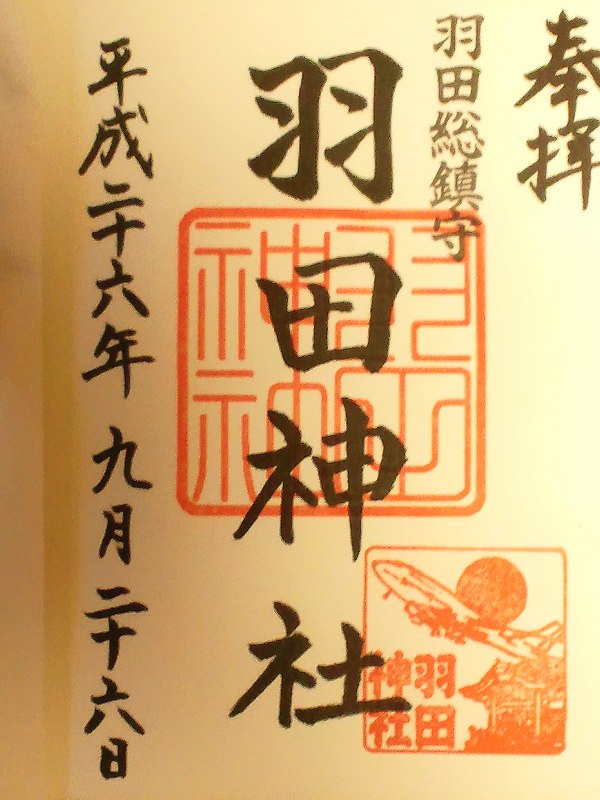 奉拝
羽田総鎮守
羽田神社
羽田
神社
平成二十六年 九月二十六日